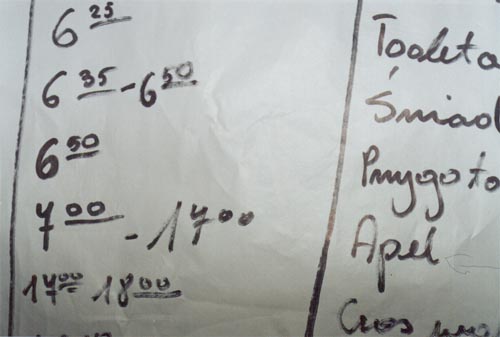 6 25 Toaleta
6 35 - 6 50 Śniad
6 50 Przygoto
7 00 - 17 00 Apel
17 00 18 00 Czas